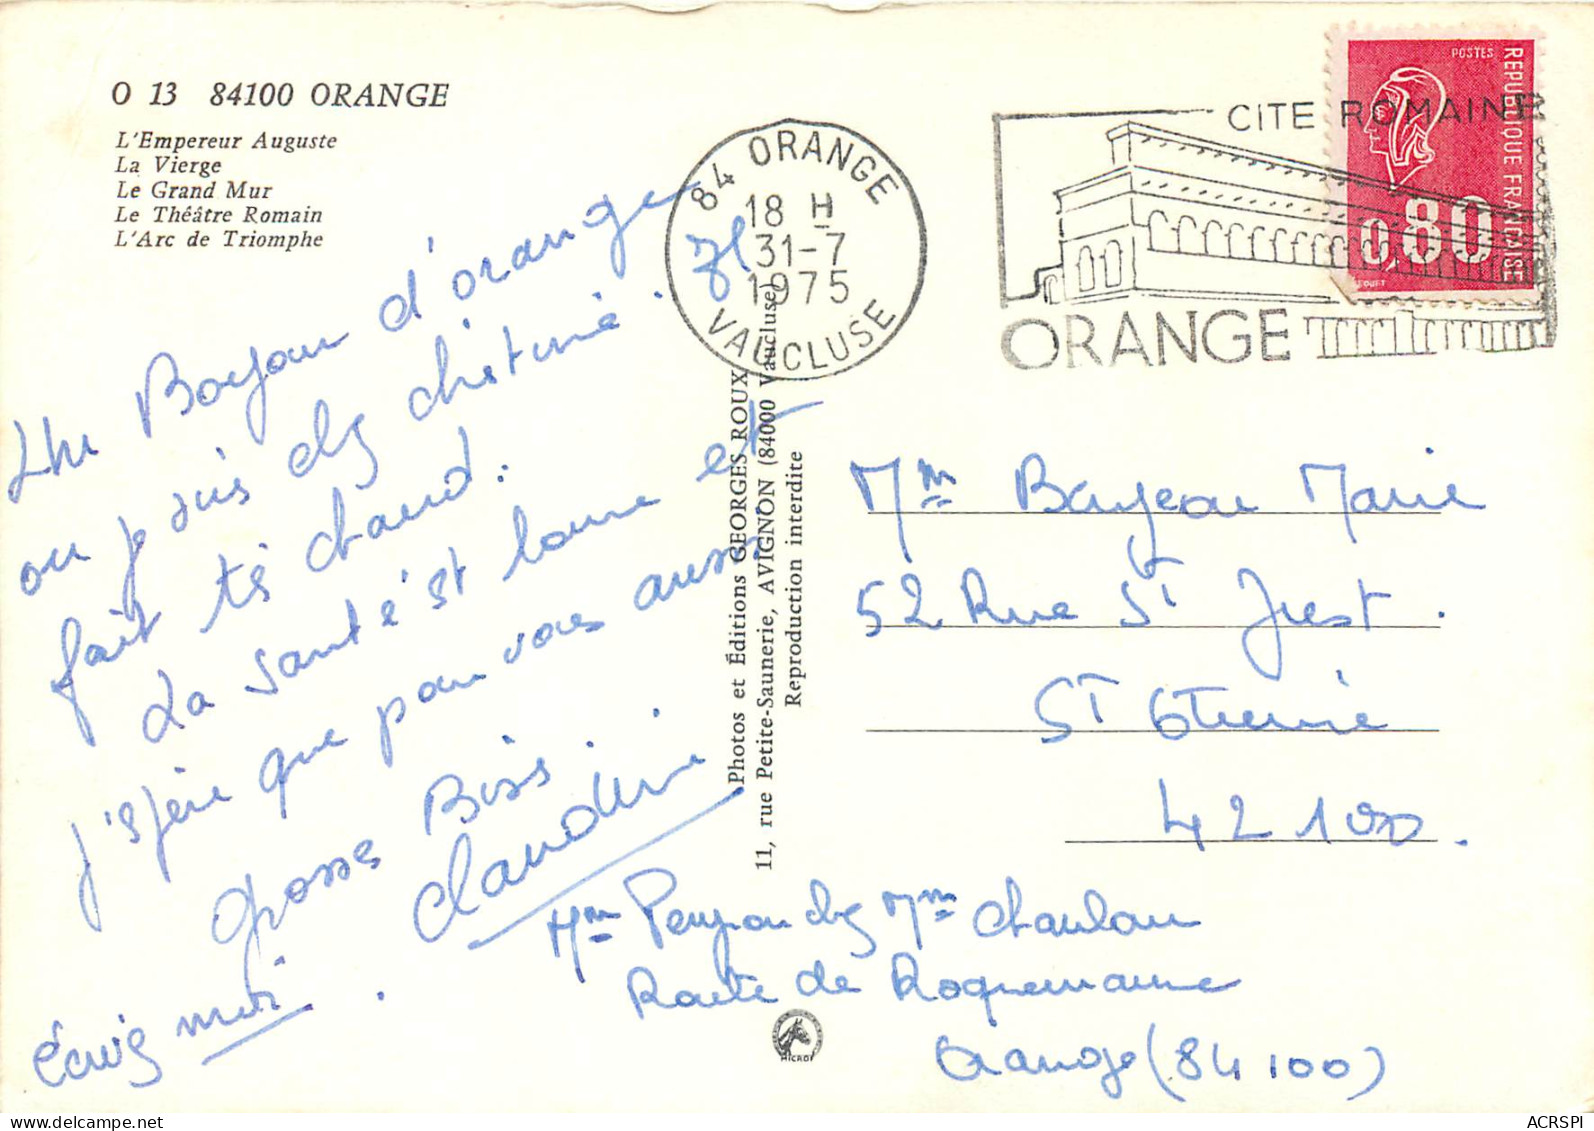 O 13 84100 ORANGE
L'Empereur Auguste
La Vierge
Le Grand Mur
Le Théâtre Romain
L'Arc de Triomphe
84 ORANGE
18 H
31-7
1975
VAUCLUSE
CITE ROMAINE
ORANGE
POSTES
REPUBLIQUE FRANÇAISE
0,80
Un Bonjour d'orange
ou je suis chez
fait tès chaud.
La santé est bonne et
j'espère que pour vous aussi.
Grosses Bises.
Claudine
écris moi.
Photos et Éditions GEORGES ROUX
11, rue Petite-Saunerie, AVIGNON (84000 Vaucluse)
Reproduction interdite
Mme Bayeau Marie
52 Rue St Just.
St Etienne
42 100.
Mme chez Mme
Route de Roquemaure
Orange (84 100)
MICRO
ACRSPI